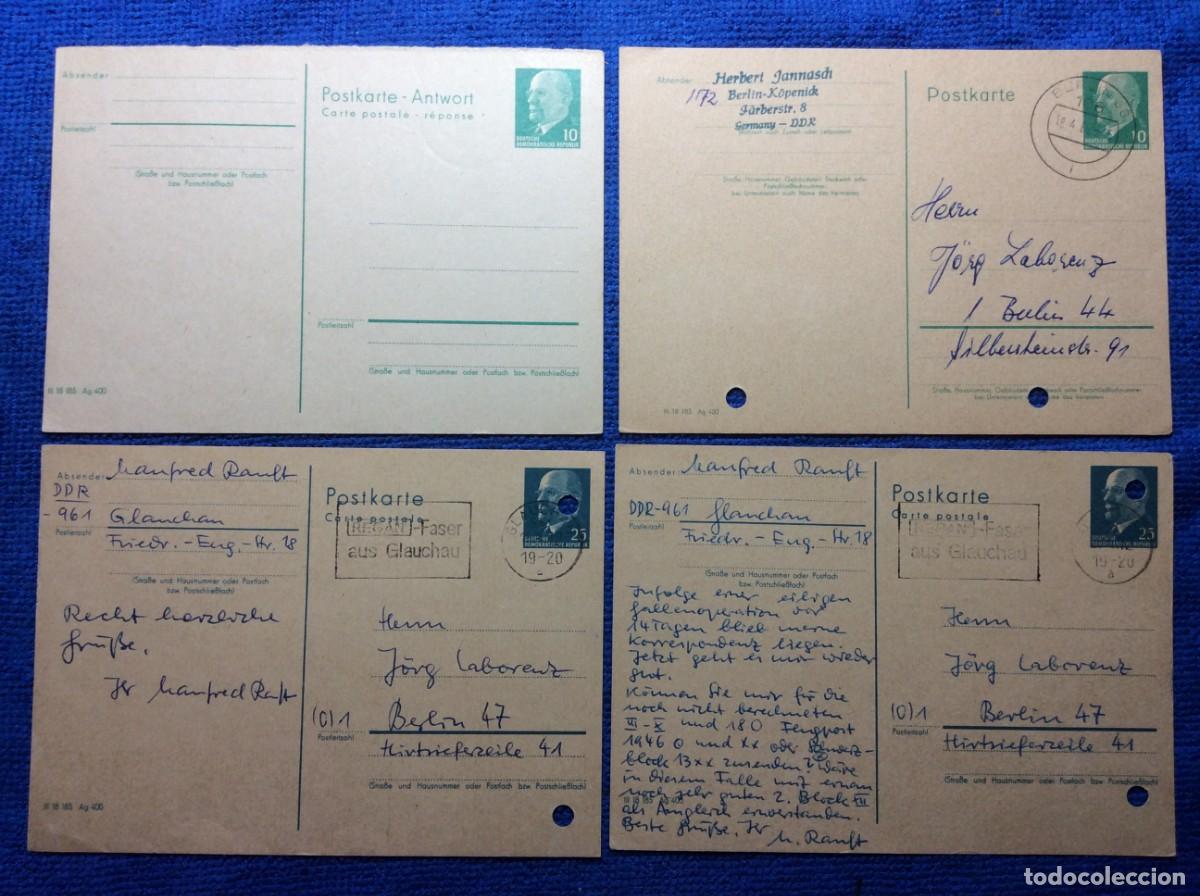 Absender
Postleitzahl
(Straße und Hausnummer oder Postfach
bzw. Postschließfach)
Postkarte - Antwort
Carte postale - réponse
10
DEUTSCHE
DEMOKRATISCHE REPUBLIK
Postleitzahl
(Straße und Hausnummer oder Postfach bzw. Postschließfach)
III 18 185 Ag 400
Absender
Herbert Jannasch
1172 Berlin-Köpenick
Färberstr. 8
Germany – DDR
Postkarte
10
DEMOKRATISCHE REPUBLIK
Herrn
Jörg Laborenz
1 Berlin 44
Silbersteinstr. 91
III 18 185 Ag 400
Absender Manfred Ranft
DDR
-961 Glauchau
Postleitzahl Friedr.-Eng.-Str. 18
(Straße und Hausnummer oder Postfach
bzw. Postschließfach)
Recht herzliche
Grüße,
Ihr Manfred Ranft
Postkarte
Carte postale
-Faser
aus Glauchau
19-20
25
DEMOKRATISCHE REPUBLIK
Herrn
Jörg Laborenz
(0)1 Berlin 47
Postleitzahl
Hirtsieferzeile 41
(Straße und Hausnummer oder Postfach bzw. Postschließfach)
III 18 185 Ag 400
Absender Manfred Ranft
DDR-961 Glauchau
Postleitzahl Friedr.-Eng.-Str. 18
(Straße und Hausnummer oder Postfach
bzw. Postschließfach)
Infolge einer eiligen
Gallenoperation vor
14 Tagen blieb meine
Korrespondenz liegen.
Jetzt geht es mir wieder
gut.
Können Sie mir für die
noch nicht berechneten
III-X und 180
1946 o und xx oder
block 13xx zusenden? Wäre
in diesem Falle mit einem
noch sehr guten 2. Block
als Ausgleich einverstanden.
Beste Grüße, Ihr
M. Ranft
Postkarte
Carte postale
-Faser
aus Glauchau
19-20
a
25
DEMOKRATISCHE REPUBLIK
Herrn
Jörg Laborenz
(0)1 Berlin 47
Postleitzahl
Hirtsieferzeile 41
(Straße und Hausnummer oder Postfach bzw. Postschließfach)
todocoleccion